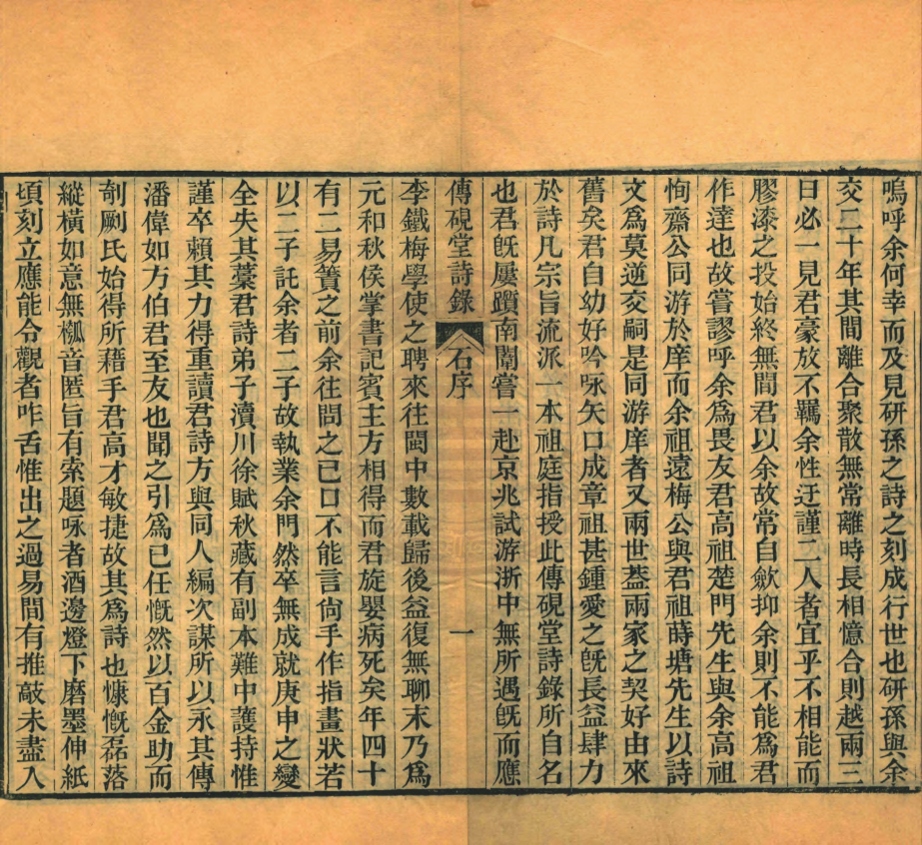 嗚呼余何幸而及見研孫之詩之刻成行世也研孫與余
交二十年其間離合聚散無常離時長相憶合則越兩三
日必一見君豪放不羈余性迂謹二人者宜乎不相能而
膠漆之投始終無間君以余故常自斂抑余則不能爲君
作達也故嘗謬呼余爲畏友君高祖楚門先生與余高祖
恂齋公同游於庠而余祖遠梅公與君祖蒔塘先生以詩
文爲莫逆交嗣是同游庠者又兩世蓋兩家之契好由來
舊矣君自幼好吟咏矢口成章祖甚鍾愛之旣長益肆力
於詩凡宗旨流派一本祖庭指授此傳硯堂詩錄所自名
也君旣屢躓南闈嘗一赴京兆試游浙中無所遇旣而應
傳硯堂詩錄 石序 一
李鐵梅學使之聘來往閩中數載歸後益復無聊末乃爲
元和秋侯掌書記賓主方相得而君旋嬰病死矣年四十
有二易簀之前余往問之已口不能言尙手作指畫狀若
以二子託余者二子故執業余門然卒無成就庚申之變
全失其藁君詩弟子瀆川徐賦秋藏有副本難中護持惟
謹卒賴其力得重讀君詩方與同人編次謀所以永其傳
潘偉如方伯君至友也聞之引爲已任慨然以百金助而
剞劂氏始得所藉手君高才敏捷故其爲詩也慷慨磊落
縱橫如意無㧓音匿旨有索題咏者酒邊燈下磨墨伸紙
頃刻立應能令觀者咋舌惟出之過易間有推敲未盡入